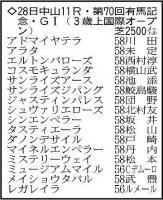 ◇28日中山11R・第70回有馬記
念・GⅠ(3歳上国際オープ
ン) 芝2500㍍
アドマイヤテラ 58川田
アラタ 58未定
エルトンバローズ 58西村淳
コスモキュランダ 58横山武
サンライズアース 58池添
サンライズジパング 58鮫島駿
ジャスティンパレス 58団野
シュヴァリエローズ 58北村友
シンエンペラー 58坂井
タスティエーラ 58松山
ダノンデサイル 58戸崎
マイネルエンペラー 58丹内
ミステリーウェイ 58松本
ミュージアムマイル 56Cデムーロ
メイショウタバル 58武豊
レガレイラ 56ルメール